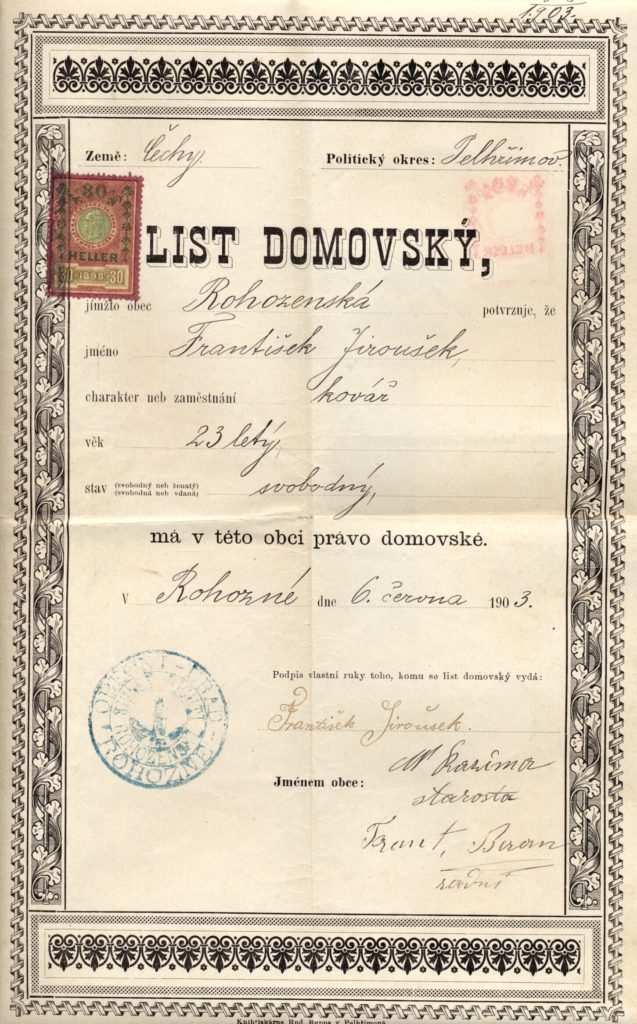 1903.
Země: Čechy. Politický okres: Pelhřimov.
30
HELLER
30 1898 30
LIST DOMOVSKÝ,
jímžto obec Rohozenská potvrzuje, že
jméno František Jiroušek,
charakter neb zaměstnání kovář
věk 23 letý,
stav (svobodný neb ženatý) svobodný,
(svobodná neb vdaná)
má v této obci právo domovské.
V Rohozné dne 6. června 1903.
Podpis vlastní ruky toho, komu se list domovský vydá:
František Jiroušek.
Jménem obce:
starosta
Frant. Beran
radní
Knihtiskárna Rud. v Pelhřimově